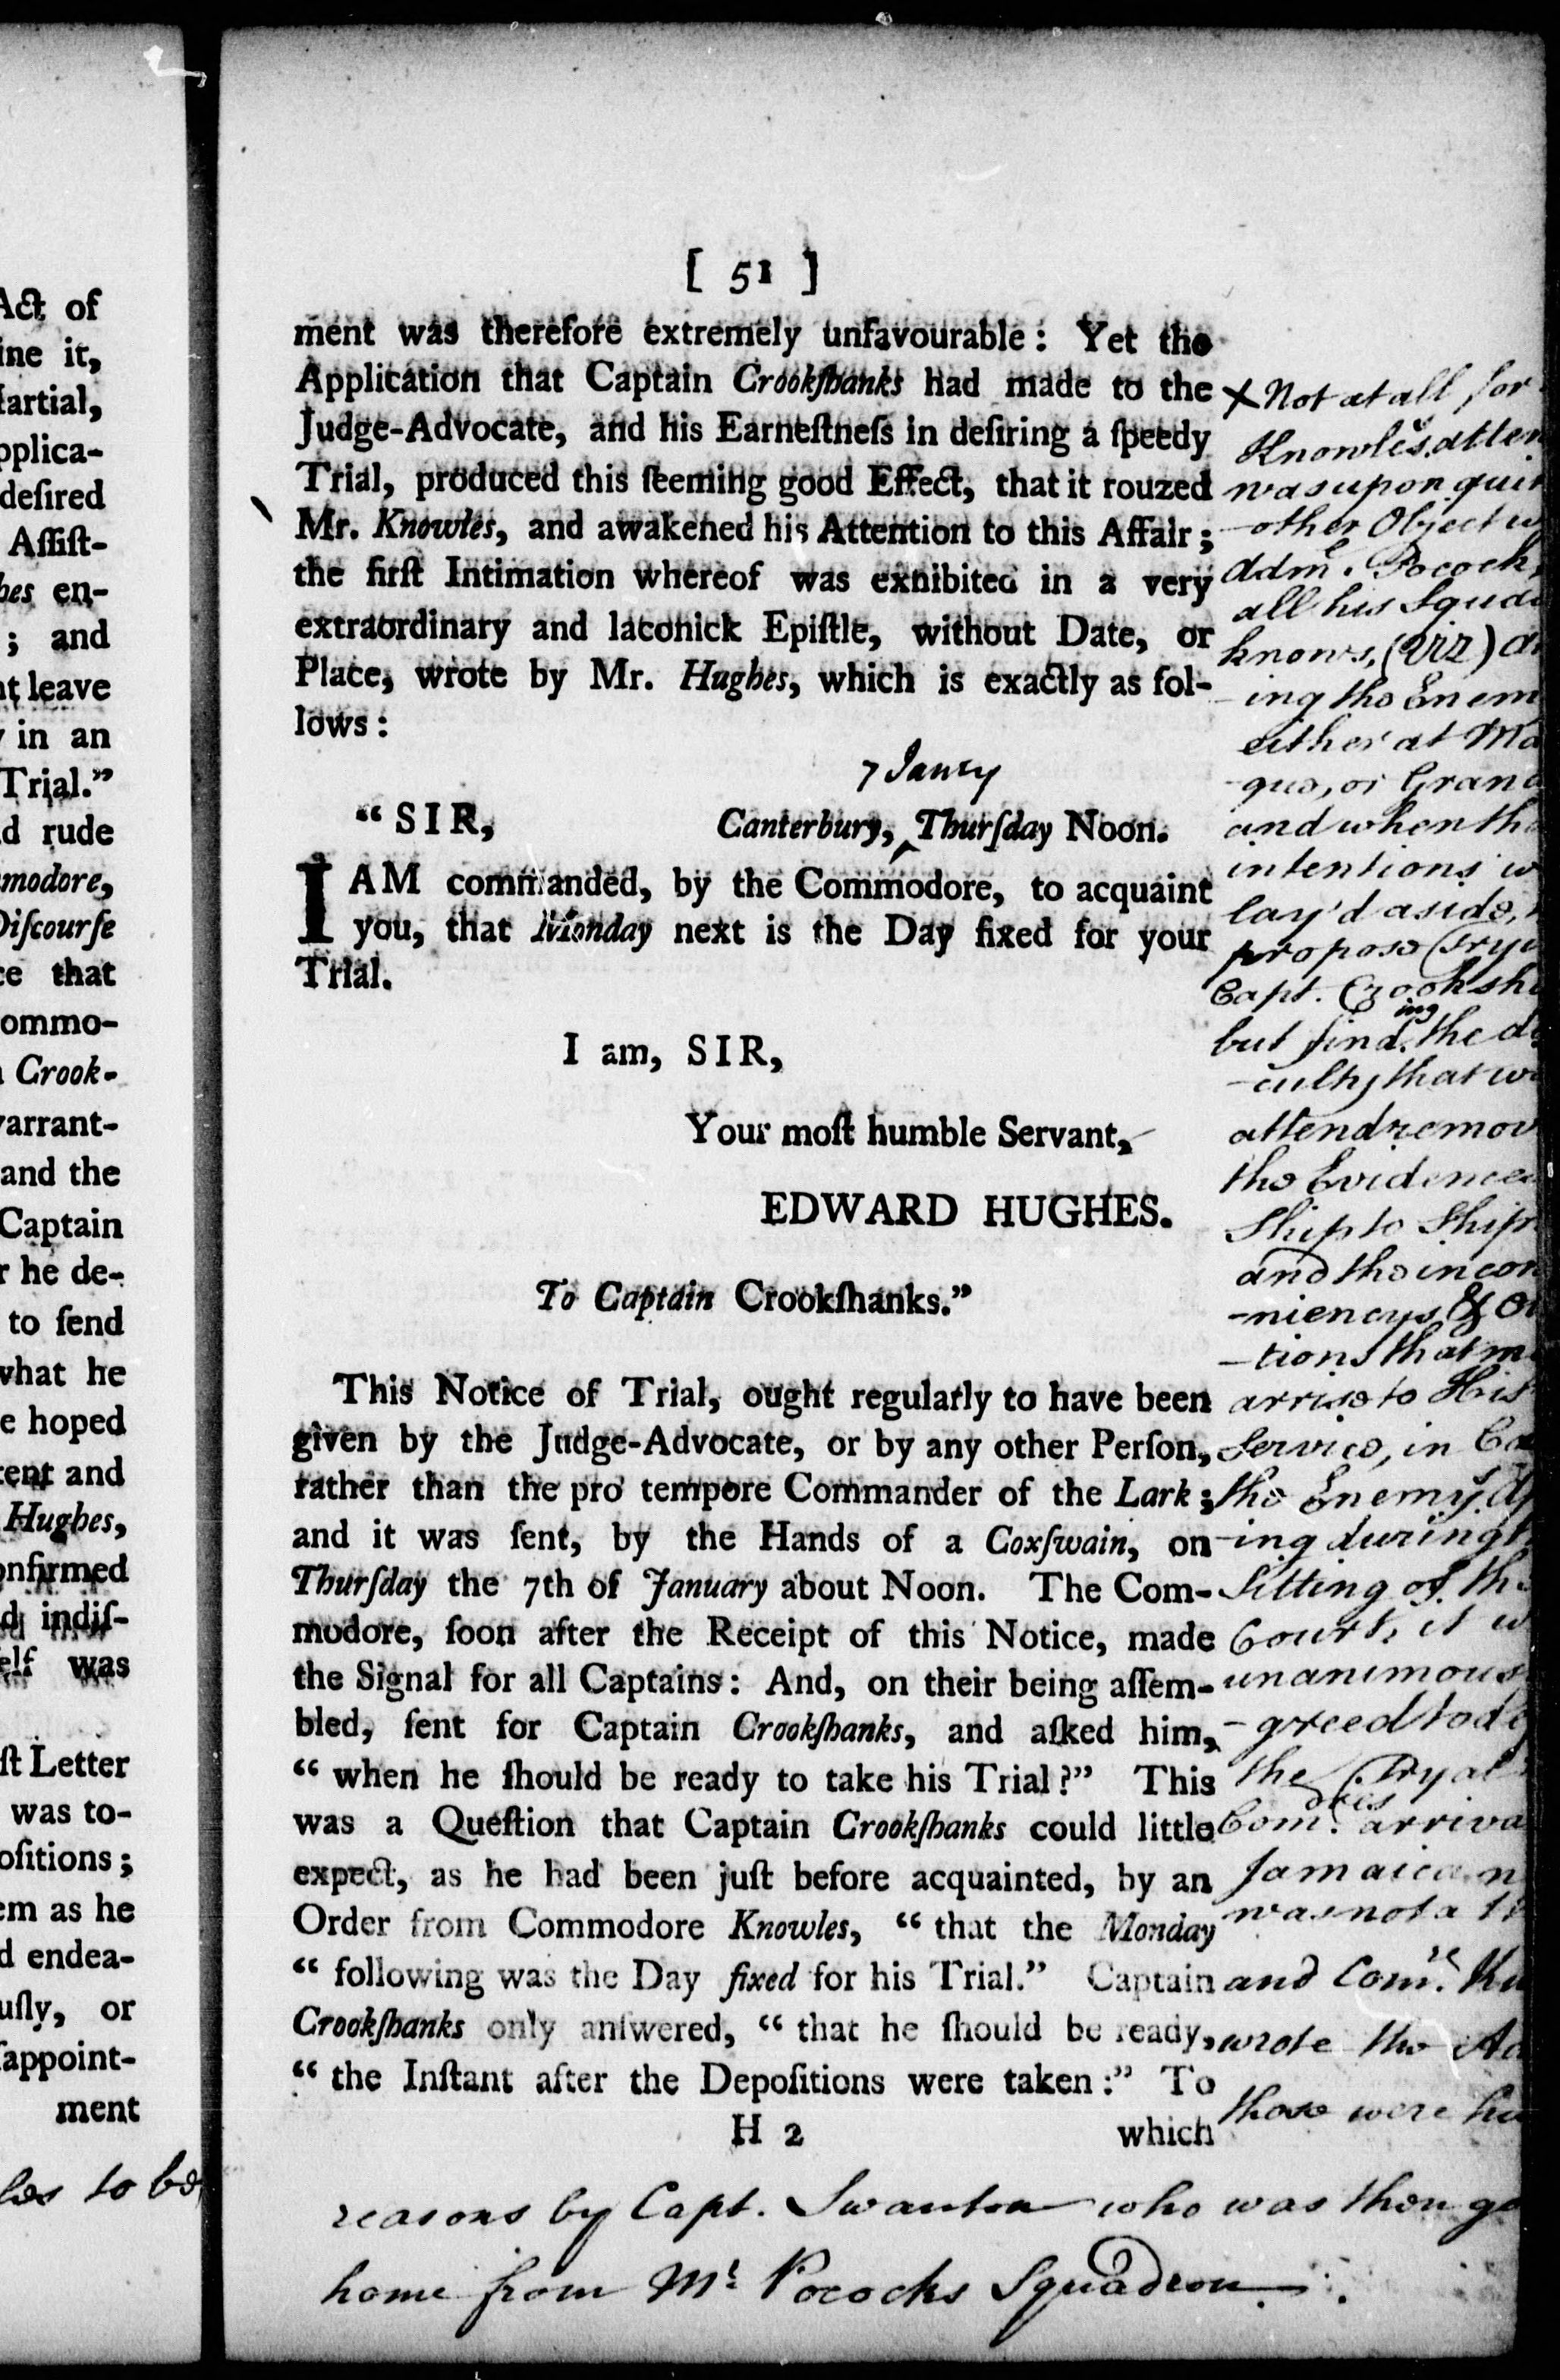 Act of
ine it,
artial,
pplica-
desired
Assist-
hes en-
; and
at leave
y in an
Trial."
d rude
modore,
Discourſe
ce that
ommo-
Crook-
arrant-
and the
Captain
r he de-
to ſend
what he
e hoped
tent and
Hughes,
onfirmed
d indiſ-
elf was
ſt Letter
was to-
oſitions;
em as he
d endea-
uſly, or
ſappoint-
ment
les to be
[ 51 ]
ment was therefore extremely unfavourable: Yet the
Application that Captain Crookſhanks had made to the
Judge-Advocate, and his Earneſtneſs in deſiring a ſpeedy
Trial, produced this ſeeming good Effect, that it rouzed
Mr. Knowles, and awakened his Attention to this Affair;
the firſt Intimation whereof was exhibited in a very
extraordinary and laconick Epiſtle, without Date, or
Place, wrote by Mr. Hughes, which is exactly as fol-
lows:
7 Janry
"SIR, Canterbury, ‸ Thurſday Noon.
I AM commanded, by the Commodore, to acquaint
you, that Monday next is the Day fixed for your
Trial.
I am, SIR,
Your moſt humble Servant,
EDWARD HUGHES.
To Captain Crookſhanks."
This Notice of Trial, ought regularly to have been
given by the Judge-Advocate, or by any other Perſon,
rather than the pro tempore Commander of the Lark;
and it was ſent, by the Hands of a Coxſwain, on
Thurſday the 7th of January about Noon. The Com-
modore, ſoon after the Receipt of this Notice, made
the Signal for all Captains: And, on their being aſſem-
bled, ſent for Captain Crookſhanks, and aſked him,
"when he ſhould be ready to take his Trial?" This
was a Queſtion that Captain Crookſhanks could little
expect, as he had been juſt before acquainted, by an
Order from Commodore Knowles, "that the Monday
"following was the Day fixed for his Trial." Captain
Crookſhanks only anſwered, "that he ſhould be ready,
"the Inſtant after the Depoſitions were taken:" To
H 2 which
X Not at all for
Knowles's atten
was upon quit
-other Object w
Adml. Pocock,
all his Squad
knows, (Viz) a
ing the Enem
either at Ma
-que, or Grana
and when the
intentions w
lay'd aside,
propose Trye
Capt. Crooksha
but finding the di
-culty that wo
attend remov
the Evidence
Ship to Ship
and the incon
-niencys & O
-tions that m
arrise to His
Service, in Ca
the Enemy's A
-ing during t
Sitting of the
Court, it w
unanimous
-greed to de
the Tryal
Comdres arriva
Jamaica, n
was not a t
and Comre. Kn
wrote the Ad
those were his
reasons by Capt. Swanton who was then go
home from Mr. Pococks Squadron.